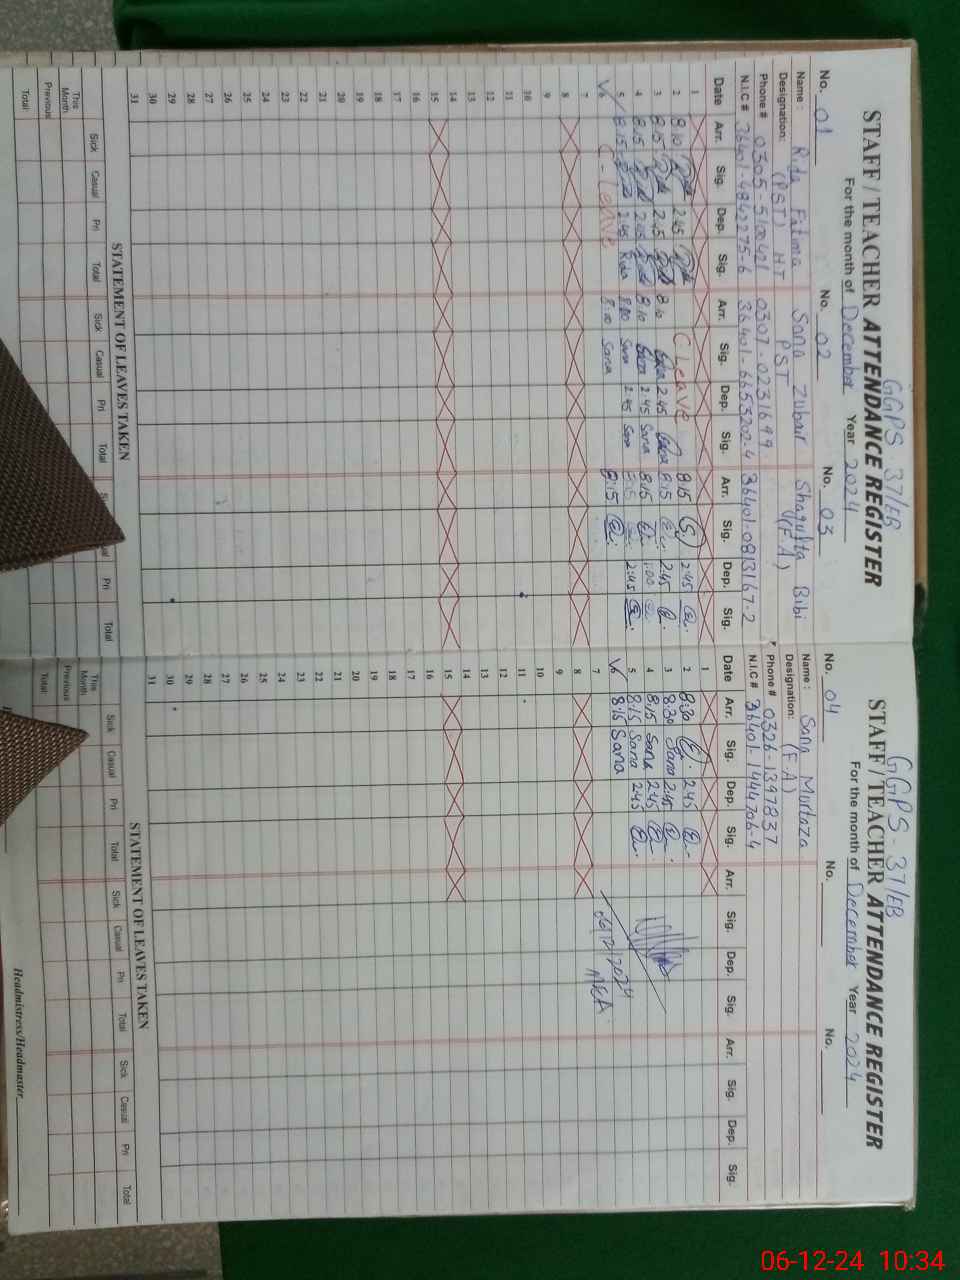 GGPS-37/EB
STAFF / TEACHER ATTENDANCE REGISTER
For the month of December Year 2024
No. 01 No. 02 No. 03
Name : Rida Fatima Sana Zubair Shagufta Bibi
Designation: (PST) HT PST (F.A)
Phone # 0305-5100421 0307-0231699
N.I.C # 36401-4842275-6 36401-6653202-4 36401-0813167-2
Date Arr. Sig. Dep. Sig. Arr. Sig. Dep. Sig. Arr. Sig. Dep. Sig.
1
2 8:10 2:45 C Leave 8:15 2:45
3 8:15 2:45 8:10 2:45 8:15 2:45
4 8:15 2:45 8:10 2:45 Sana 8:15 1:00
5 8:15 2:45 Rida 8:00 Sana 2:45 Sana 8:15 2:45
6 C-Leave 8:10 Sana 8:15
7
8
9
10
11
12
13
14
15
16
17
18
19
20
21
22
23
24
25
26
27
28
29
30
31
STATEMENT OF LEAVES TAKEN
Sick Casual Pri Total Sick Casual Pri Total Pri Total
This Month
Previous
Total
GGPS-37/EB
STAFF / TEACHER ATTENDANCE REGISTER
For the month of December Year 2024
No. 04 No. No.
Name : Sana Murtaza
Designation: (F.A)
Phone # 0326-1397837
N.I.C # 36401-1444706-4
Date Arr. Sig. Dep. Sig. Arr. Sig. Dep. Sig. Arr. Sig. Dep. Sig.
1
2 8:30 2:45
3 8:30 Sana 2:45
4 8:15 Sana 2:45
5 8:15 Sana 2:45
6 8:15 Sana
7
06/12/2024
MEA
8
9
10
11
12
13
14
15
16
17
18
19
20
21
22
23
24
25
26
27
28
29
30
31
STATEMENT OF LEAVES TAKEN
Sick Casual Pri Total Sick Casual Pri Total Sick Casual Pri Total
This Month
Previous
Total
Headmistress/Headmaster
06-12-24 10:34